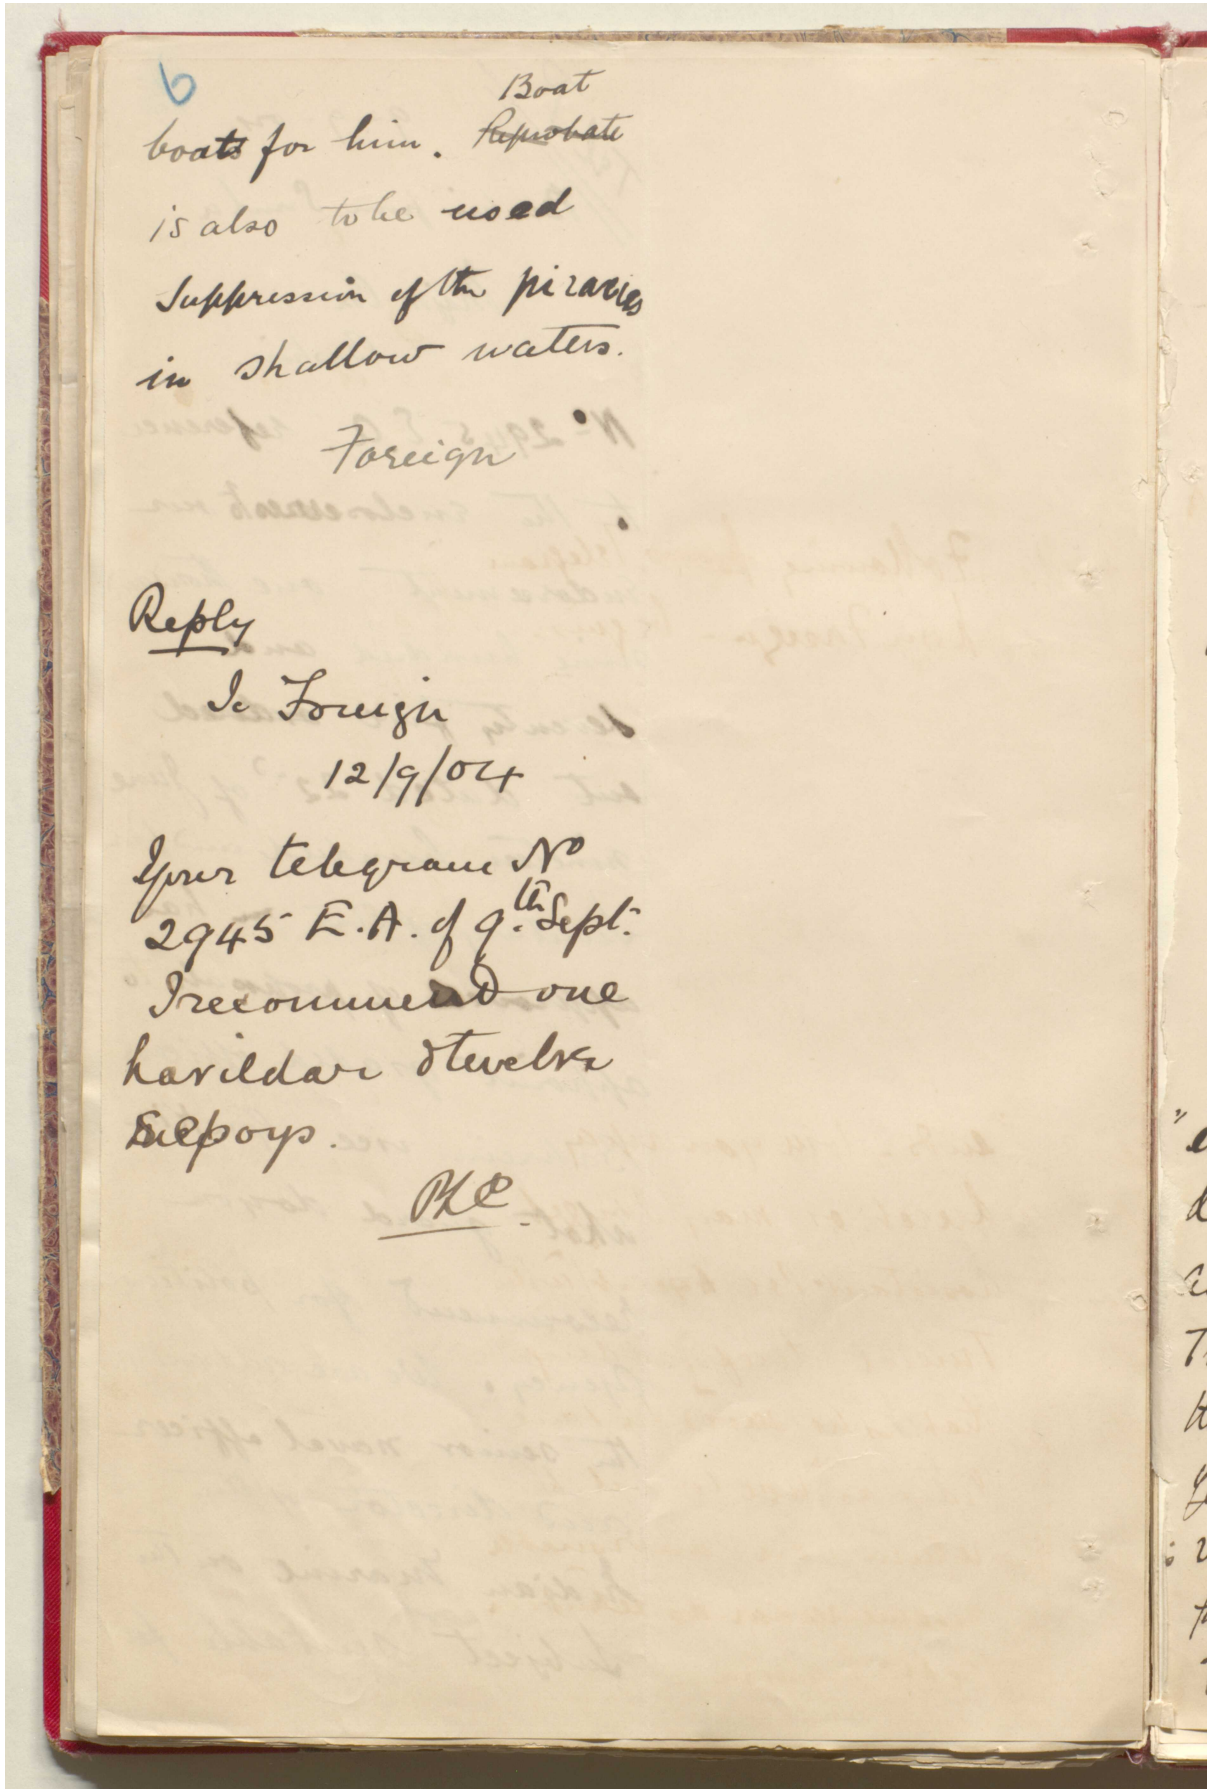 6
Boat
boats for him. Reprobate
is also to be used
Suppression of the piracies
in shallow waters.
Foreign
Reply
To Foreign
12/9/04
Your telegram No
2945 E.A. of 9th Sept.
I recommend one
havildar & twelve
sepoys.
PZC